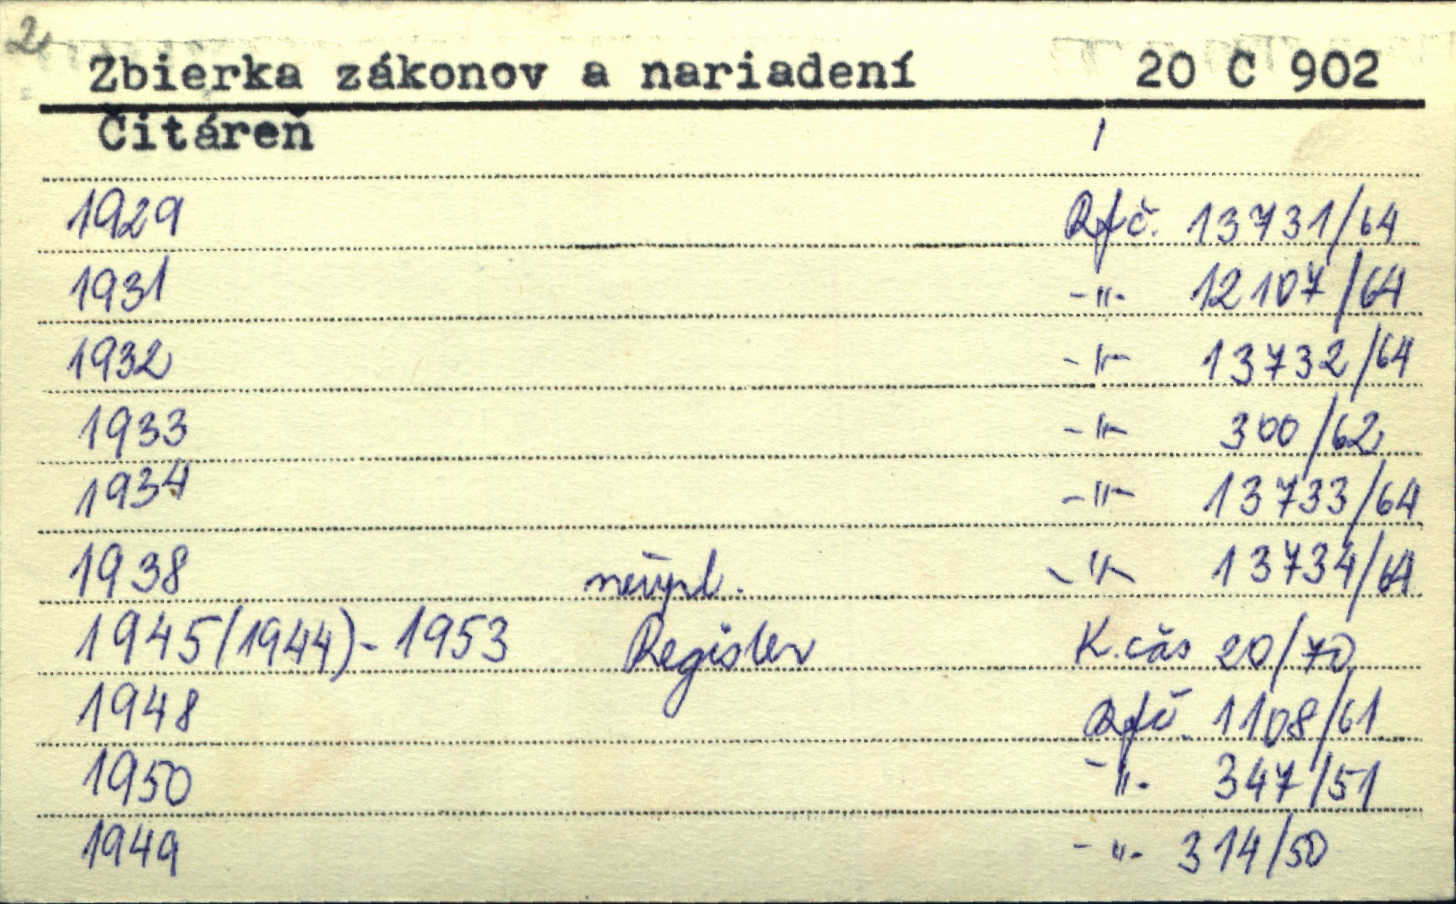 2
Zbierka zákonov a nariadení 20 C 902
Čitáreň
1929 Rfč. 13731/64
1931 -"- 12107/64
1932 -"- 13732/64
1933 -"- 300/62
1934 -"- 13733/64
1938 neúpl. -"- 13734/64
1945(1944)-1953 Register K.čas 20/70
1948 Rfč. 1108/61
1950 -"- 347/51
1949 -"- 314/50